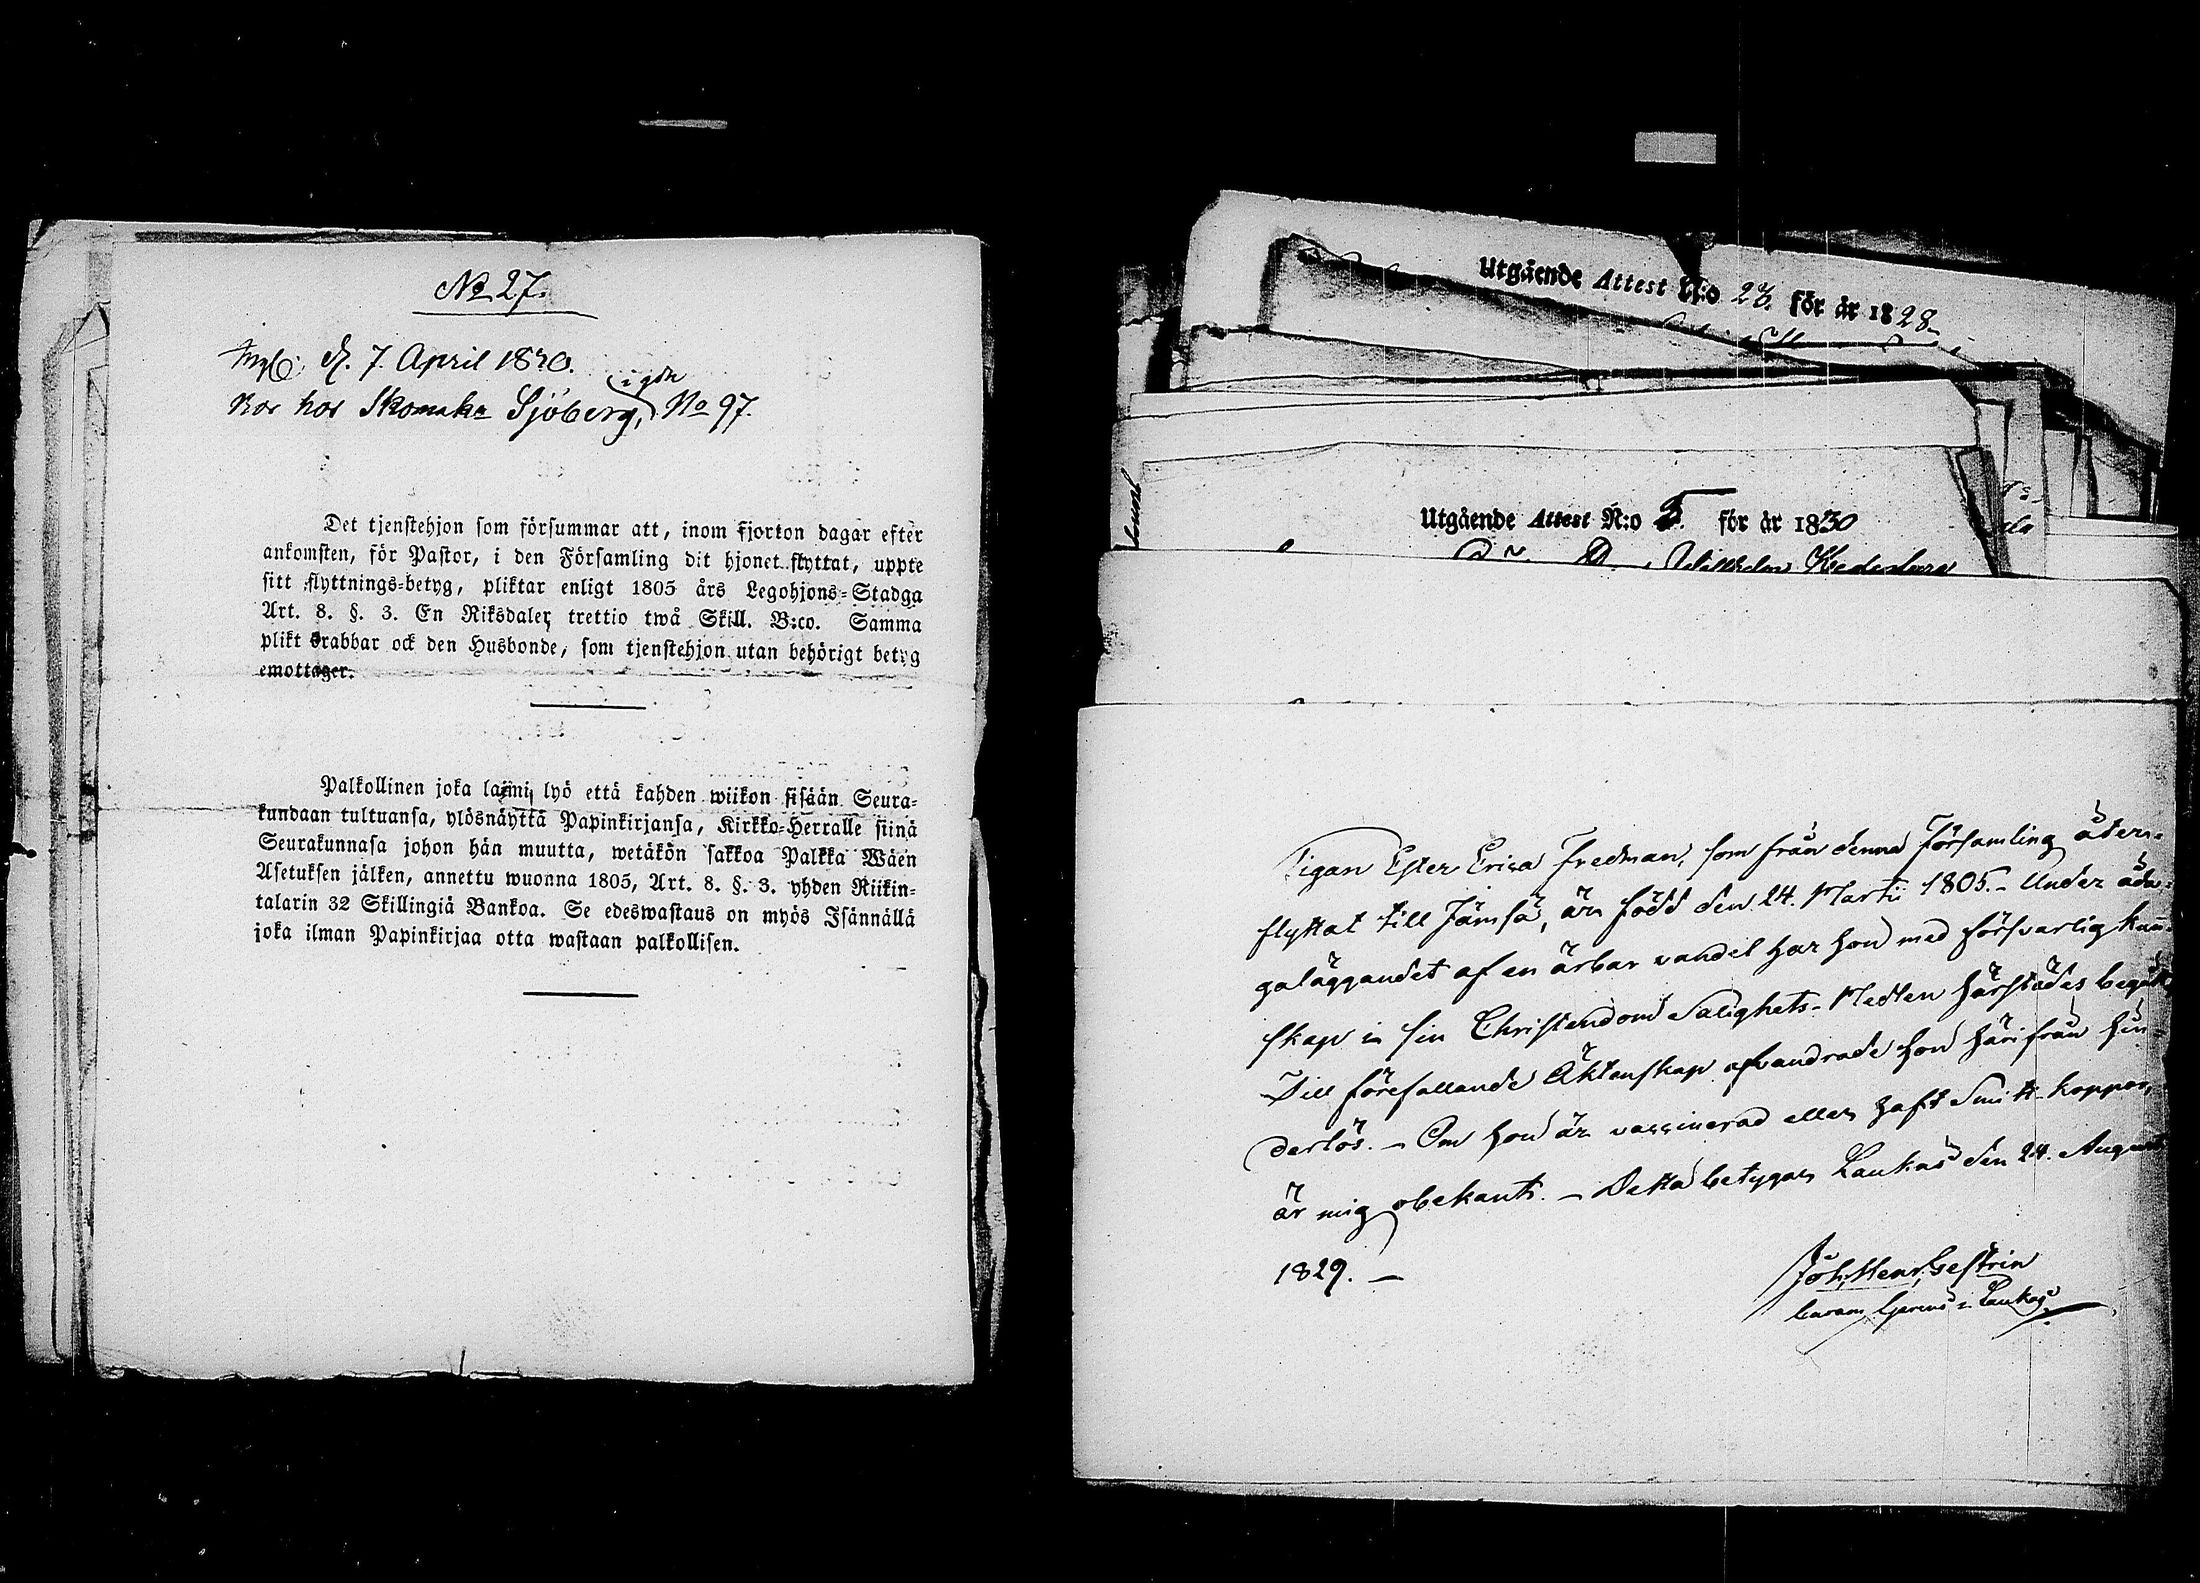 No 27.
d. 7. April 1830.
Bor hos Skomak. Sjöberg, i gdn No 97.
Det tjenstehjon som försummar att, inom fjorton dagar efter
ankomsten, för Pastor, i den Församling dit hjonet flyttat, uppte
sitt flyttnings-betyg, pliktar enligt 1805 års Legohjons-Stadga
Art. 8. §. 3. En Riksdaler trettio twå Skill. B:co. Samma
plikt drabbar ock den Husbonde, som tjenstehjon utan behörigt betyg
emottager.
Palkollinen joka laimi lyö että kahden wiikon sisään Seura-
kundaan tultuansa, ylösnäyttä Papinkirjansa, Kirkko-Herralle siinä
Seurakunnasa johon hän muutta, wetäkön sakkoa Palkka Wäen
Asetuksen jälken, annettu wuonna 1805, Art. 8. §. 3. yhden Riikin-
talarin 32 Skillingiä Bankoa. Se edeswastaus on myös Isännällä
joka ilman Papinkirjaa otta wastaan palkollisen.
Utgående Attest N:o 23. för år 1828
Utgående Attest N:o 5. för år 1830
Wilhelm
Pigan Ester Erica Fredman, som från denna Församling åter-
flyttat till Jämsä, är född den 24. Martii 1805. – Under åda-
galäggandet af en ärbar vandel har hon med försvarlig kun-
skap i sin Christendom Salighets-Medlen härstädes begått
Till förefallande Äktenskap afvandrade hon härifrån hin-
derlös. – Om hon är vaccinerad eller haft Smitt-koppor,
är mig obekant. – Detta betygar Laukas den 24. August
1829. –
Joh. Henr. Gestrin
Curam Gerens i Laukas